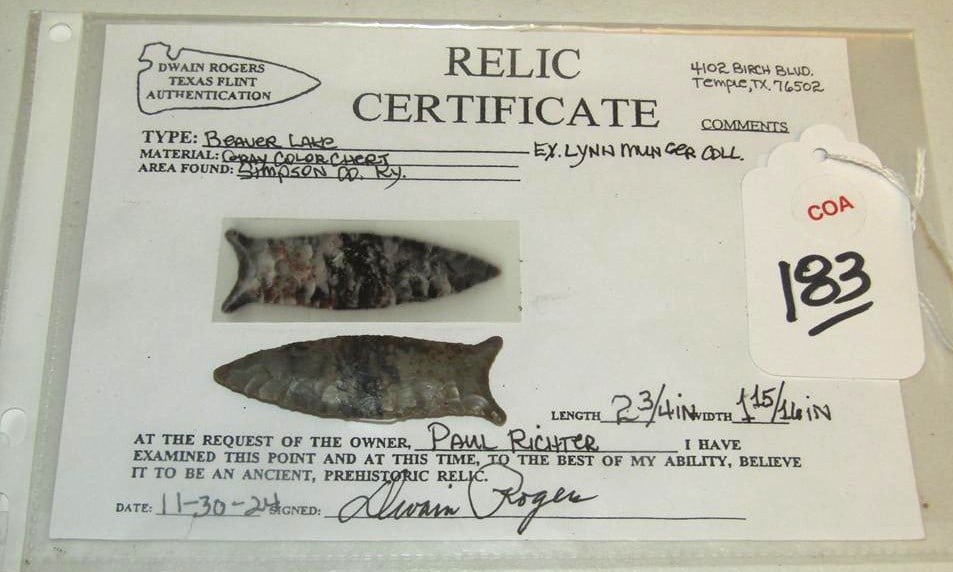 DWAIN ROGERS
TEXAS FLINT
AUTHENTICATION
RELIC
CERTIFICATE
4102 BIRCH BLVD.
Temple, TX. 76502
COMMENTS
TYPE: BEAVER LAKE
EX. LYNN MUNGER COLL.
MATERIAL: GRAY COLOR CHERT
AREA FOUND: SIMPSON CO. KY.
COA
183
LENGTH 2 3/4 IN WIDTH 1 15/16 IN
AT THE REQUEST OF THE OWNER, PAUL RICHTER I HAVE
EXAMINED THIS POINT AND AT THIS TIME, TO THE BEST OF MY ABILITY, BELIEVE
IT TO BE AN ANCIENT, PREHISTORIC RELIC.
DATE: 11-30-24 SIGNED: Dwain Rogers